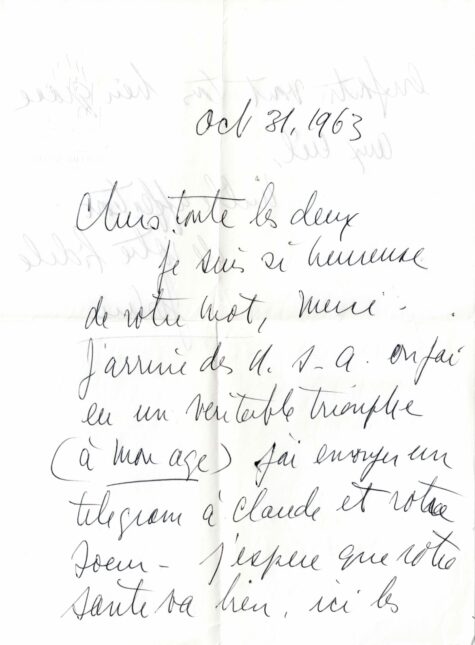 Oct 31, 1963
Chers toute les deux
je suis si heureuse
de votre mot, merci -
J'arrive des U. S - A. ou j'ai
eu un veritable triomphe
(à mon age) j'ai envoyer un
telegram à Claude et votre
soeur - j'espere que votre
sante va bien, ici les